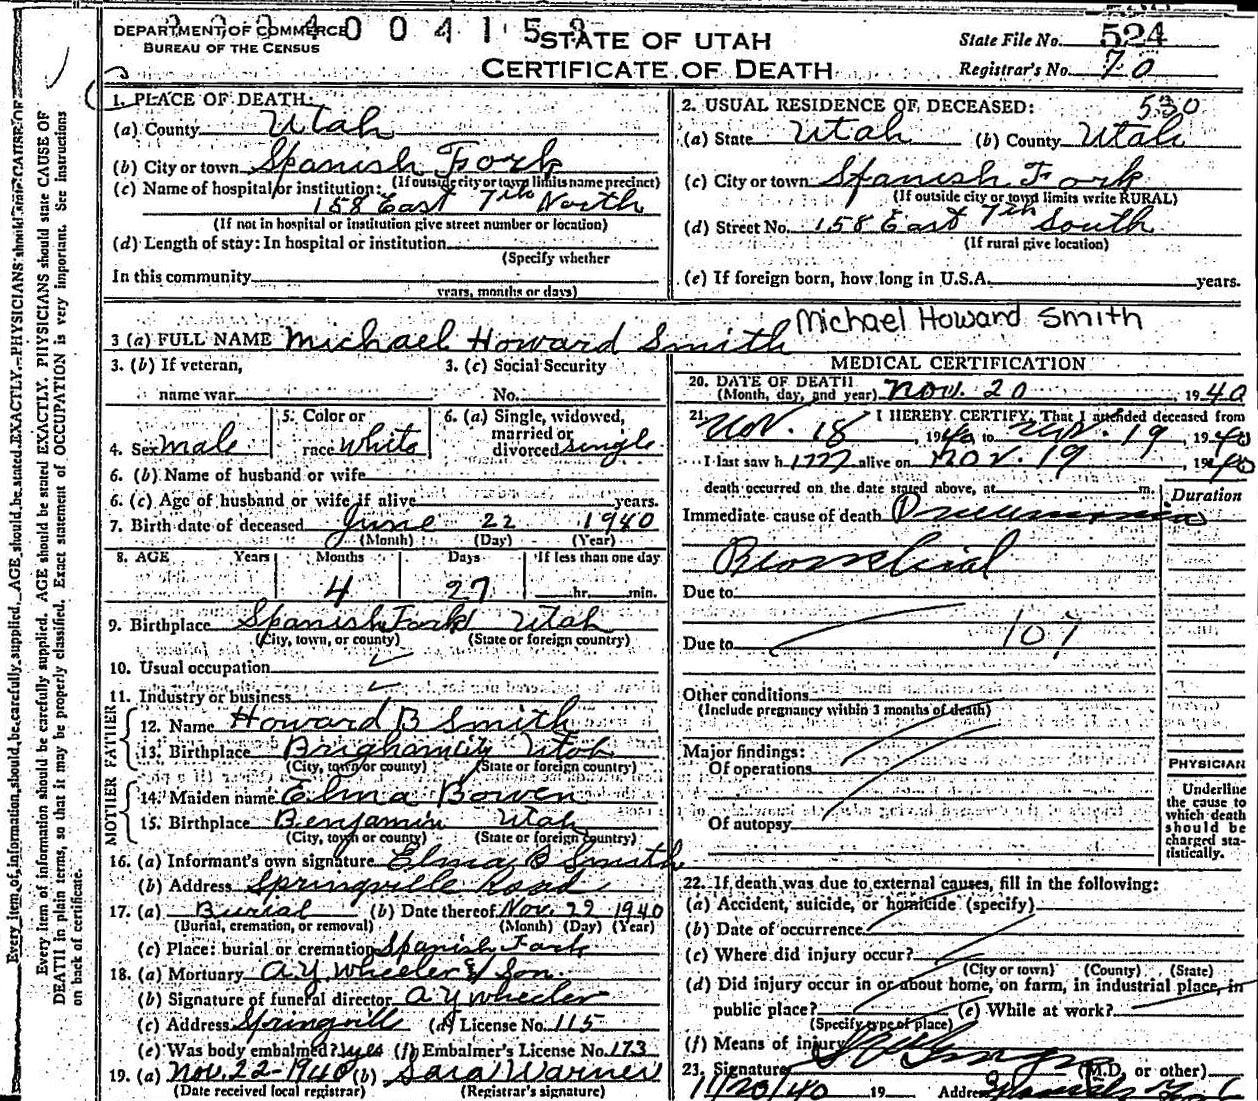 DEPARTMENT OF COMMERCE
BUREAU OF THE CENSUS
STATE OF UTAH
CERTIFICATE OF DEATH
State File No. 524
Registrar's No. 70
1. PLACE OF DEATH:
(a) County Utah
(b) City or town Spanish Fork
(If outside city or town limits name precinct)
(c) Name of hospital or institution:
158 East 7th North
(If not in hospital or institution give street number or location)
(d) Length of stay: In hospital or institution
(Specify whether
In this community
years, months or days)
2. USUAL RESIDENCE OF DECEASED: 530
(a) State Utah (b) County Utah
(c) City or town Spanish Fork
(If outside city or town limits write RURAL)
(d) Street No. 158 East 7th South
(If rural give location)
(e) If foreign born, how long in U.S.A. years.
3 (a) FULL NAME Michael Howard Smith Michael Howard Smith
3. (b) If veteran,
name war
3. (c) Social Security
No.
4. Sex male
5. Color or
race white
6. (a) Single, widowed,
married or
divorced single
6. (b) Name of husband or wife
6. (c) Age of husband or wife if alive years.
7. Birth date of deceased June 22 1940
(Month) (Day) (Year)
8. AGE Years Months Days If less than one day
4 27 hr. min.
9. Birthplace Spanish Fork Utah
(City, town, or county) (State or foreign country)
10. Usual occupation
11. Industry or business
FATHER
12. Name Howard B Smith
13. Birthplace Brigham City Utah
(City, town or county) (State or foreign country)
MOTHER
14. Maiden name Elma Bowen
15. Birthplace Benjamin Utah
(City, town or county) (State or foreign country)
16. (a) Informant's own signature Elma B Smith
(b) Address Springville Road
17. (a) Burial (b) Date thereof Nov. 22 1940
(Burial, cremation, or removal) (Month) (Day) (Year)
(c) Place: burial or cremation Spanish Fork
18. (a) Mortuary A.Y. Wheeler & Son.
(b) Signature of funeral director A Y Wheeler
(c) Address Springvill (d) License No. 115
(e) Was body embalmed? yes (f) Embalmer's License No. 173
19. (a) Nov. 22-1940 (b) Sara Warner
(Date received local registrar) (Registrar's signature)
MEDICAL CERTIFICATION
20. DATE OF DEATH
(Month, day, and year) Nov. 20, 1940
21. I HEREBY CERTIFY, That I attended deceased from
Nov. 18, 1940 to Nov. 19, 1940
I last saw h im alive on Nov. 19, 1940
death occurred on the date stated above, at m.
Duration
Immediate cause of death Pneumonia
Bronchial
Due to
Due to 107
Other conditions
(Include pregnancy within 3 months of death)
Major findings:
Of operations
Of autopsy
PHYSICIAN
Underline
the cause to
which death
should be
charged sta-
tistically.
22. If death was due to external causes, fill in the following:
(a) Accident, suicide, or homicide (specify)
(b) Date of occurrence
(c) Where did injury occur?
(City or town) (County) (State)
(d) Did injury occur in or about home, on farm, in industrial place, in
public place? (e) While at work?
(Specify type of place)
(f) Means of injury
23. Signature (M.D. or other)
11/20/40 19 Address
Every item of information should be carefully supplied. AGE should be stated EXACTLY. PHYSICIANS should state CAUSE OF
Every item of information should be carefully supplied. AGE should be stated EXACTLY. PHYSICIANS should state CAUSE OF
DEATH in plain terms, so that it may be properly classified. Exact statement of OCCUPATION is very important. See instructions
on back of certificate.